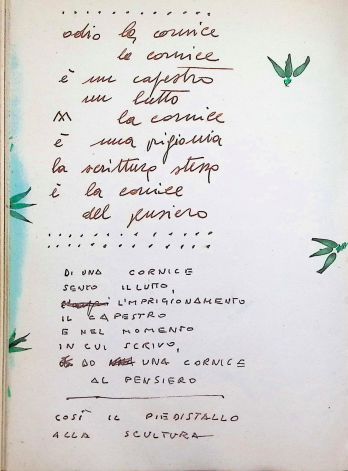 odio la cornice
la cornice
è un capestro
un lutto
la cornice
è una prigionia
la scrittura stessa
è la cornice
del pensiero
DI UNA CORNICE
SENTO IL LUTTO,
L'IMPRIGIONAMENTO
IL CAPESTRO
E NEL MOMENTO
IN CUI SCRIVO,
DO UNA CORNICE
AL PENSIERO
COSÌ IL PIEDISTALLO
ALLA SCULTURA